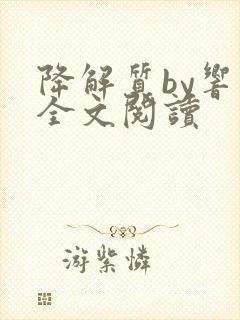 降解質by響
全文閱讀
游紫憐